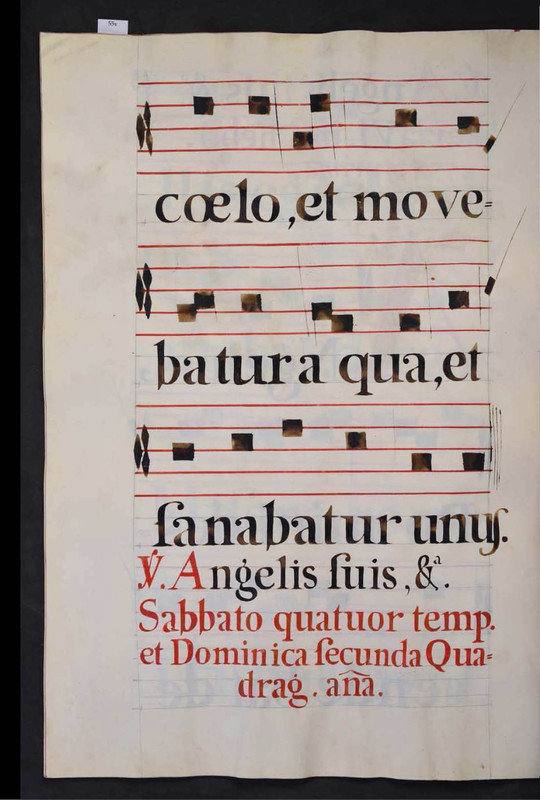 cœlo, et move=
batur a qua, et
ſanabatur unus.
℣. Angelis ſuis, &ª.
Sabbato quatuor temp.
et Dominica ſecunda Qua=
drag. anã.